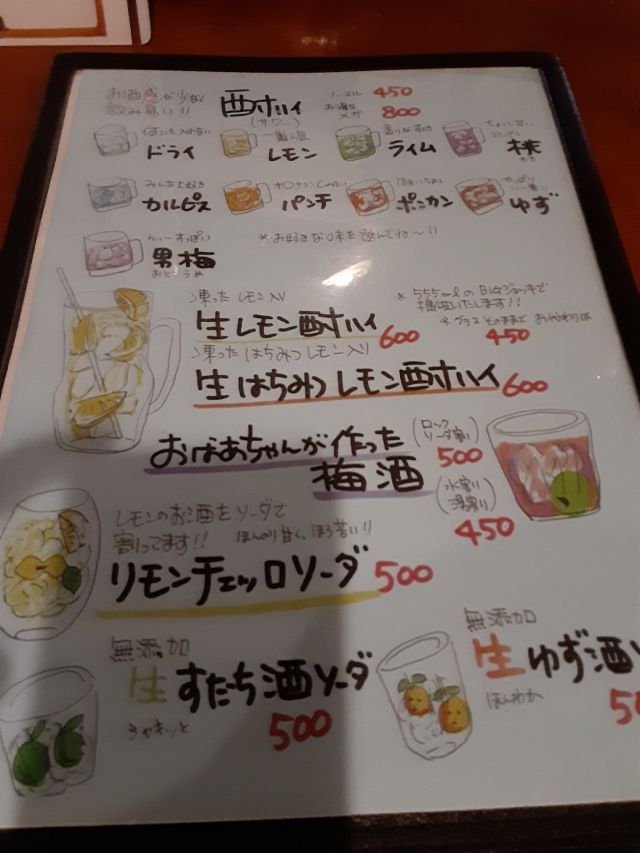 お酒感が少なく
飲み易い!!
酎ハイ
(サワー)
ノーマル 450
お得な
メガ 800
何にも入れない
ドライ
一番人気
レモン
ライム
ちょっと甘い
桃
みんな大好き
カルピス
パンチ
ポンカン
やっぱり
ゆず
すっぱい
男梅
おとこうめ
※お好きな味を選んでね〜!!
凍ったレモン入り
生レモン酎ハイ 600
※BIGジョッキで
提供いたします!!
※グラスそのままで おかわりは
450
凍ったはちみつレモン入り
生はちみつレモン酎ハイ 600
おばあちゃんが作った
梅酒
(ロック
ソーダ割り)
500
(水割り
湯割り)
450
レモンのお酒をソーダで
割ってます!! ほんのり甘く、ほろ苦い!!
リモンチェッロソーダ 500
無添加
生すだち酒ソーダ
シャキッと
500
無添加
生ゆず酒
ほんわか